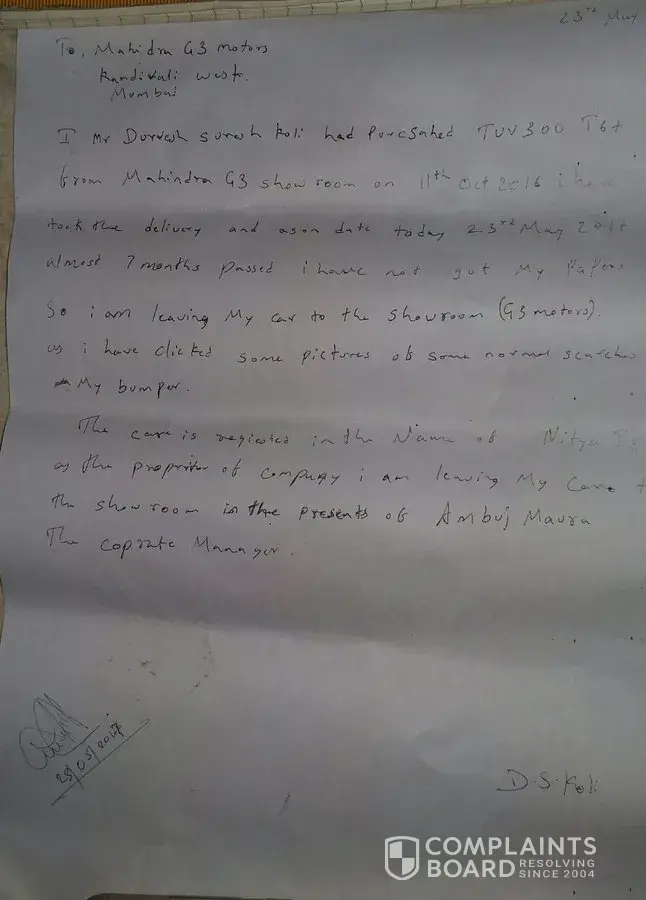 23rd May
To, Mahidra G3 motors
Kandivali west.
Mombai
I Mr Durvesh suresh koli had Purcsahed TUV300 T6+
from Mahindra G3 showroom on 11th Oct 2016 i have
took the delivery and as on date today 23rd May 2017
almost 7 months passed i have not got My Papers
So i am leaving My car to the showroom (G3 motors).
as i have clicked some pictures of some normal scarches
My bumper.
The care is registed in the Name of Nitya
as the propriter of compuny i am leaving My Care
the showroom in the presents of Ambuj Maura
The coprate Manager.
23/05/2017
D.S. Koli
COMPLAINTS
BOARD RESOLVING
SINCE 2004